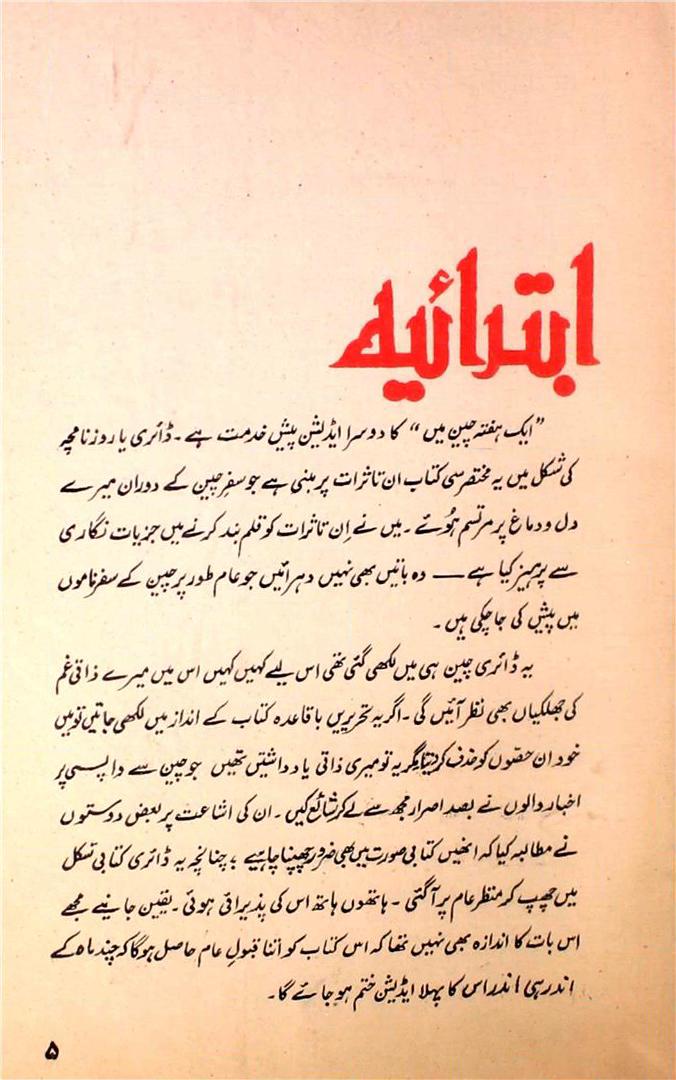 ابتدائیہ
”ایک ہفتہ چین میں“ کا دوسرا ایڈیشن پیشِ خدمت ہے۔ ڈائری یا روزنامچہ
کی شکل میں یہ مختصر سی کتاب ان تاثرات پر مبنی ہے جو سفرِ چین کے دوران میرے
دل و دماغ پر مرتسم ہُوئے۔ میں نے اِن تاثرات کو قلم بند کرنے میں جزیات نگاری
سے پرہیز کیا ہے — وہ باتیں بھی نہیں دہرائیں جو عام طور پر چین کے سفرناموں
میں پیش کی جا چکی ہیں۔
یہ ڈائری چین ہی میں لکھی گئی تھی اس لیے کہیں کہیں اس میں میرے ذاتی غم
کی جھلکیاں بھی نظر آئیں گی۔ اگر یہ تحریریں باقاعدہ کتاب کے انداز میں لکھی جاتیں تو میں
خود ان حصوں کو حذف کر دیتا مگر یہ تو میری ذاتی یادداشتیں تھیں جو چین سے واپسی پر
اخبار والوں نے بصد اصرار مجھ سے لے کر شائع کیں۔ ان کی اشاعت پر بعض دوستوں
نے مطالبہ کیا کہ انھیں کتابی صورت میں بھی ضرور چھپنا چاہیے، چنانچہ یہ ڈائری کتابی شکل
میں چھپ کر منظرِ عام پر آ گئی۔ ہاتھوں ہاتھ اس کی پذیرائی ہوئی۔ یقین جانیے مجھے
اس بات کا اندازہ بھی نہیں تھا کہ اس کتاب کو اتنا قبولِ عام حاصل ہوگا کہ چند ماہ کے
اندر ہی اندر اس کا پہلا ایڈیشن ختم ہو جائے گا۔
۵